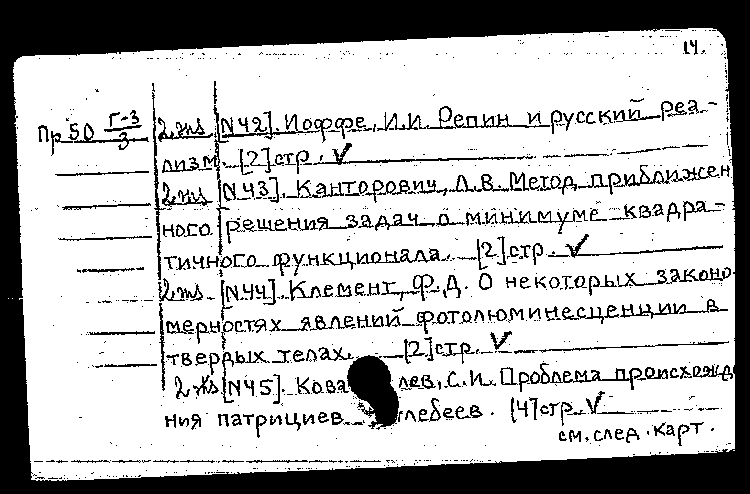 14.
Пр 50 Г-3/3 2 экз [N42]. Иоффе, И.И. Репин и русский реа-
лизм. [2] стр. ✓
2 экз [N43]. Канторович, Л.В. Метод приближен
ного решения задач о минимуме квадра-
тичного функционала. [2] стр. ✓
2 экз. [N44]. Клемент, Ф.Д. О некоторых законо-
мерностях явлений фотолюминесценции в
твердых телах. [2] стр. ✓
2 экз [N45]. Кова лев, С.И. Проблема происхожде
ния патрициев лебеев. [4] стр. ✓
см. след. карт.